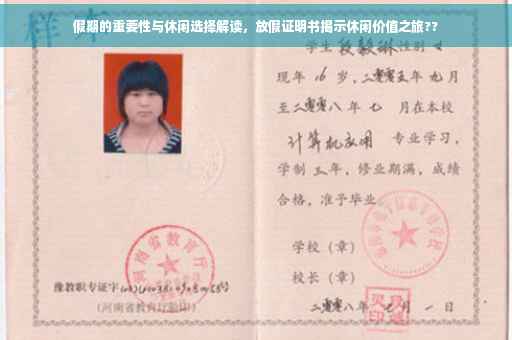 假期的重要性与休闲选择解读，放假证明书揭示休闲价值之旅??
样本
学生段毅琳性别女
现年16岁，二零零五年九月
至二零零八年七月在本校
计算机应用 专业学习，
学制三年，修业期满，成绩
合格，准予毕业。
学校（章）
校长（章）
二零零八年 月一日
河南省教育厅
豫教职专证字
(河南省教育厅验印)